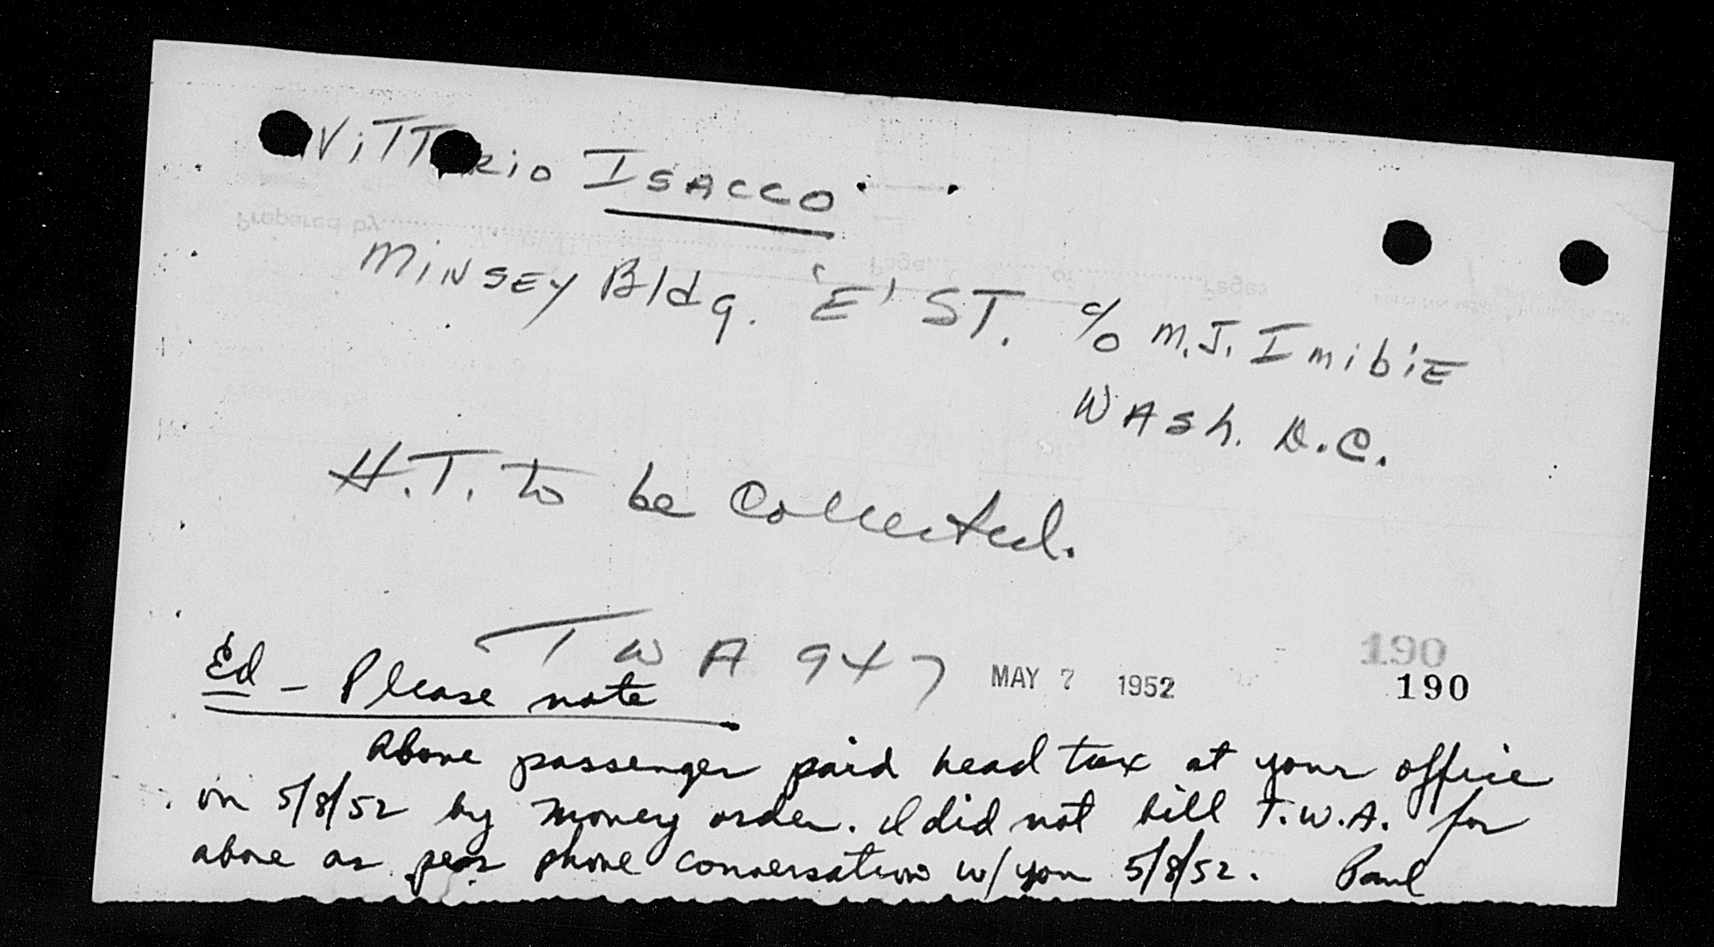 Vittorio Isacco
Minsey Bldg. 'E' St. c/o M.J. Imibie
Wash. D.C.
H.T. to be collected.
TWA 947 MAY 7 1952 190
190
Ed - Please note
Above passenger paid head tax at your office
on 5/8/52 by money order. I did not bill T.W.A. for
above as per phone conversation w/you 5/8/52. Paul
Prepared by
Page of Pages